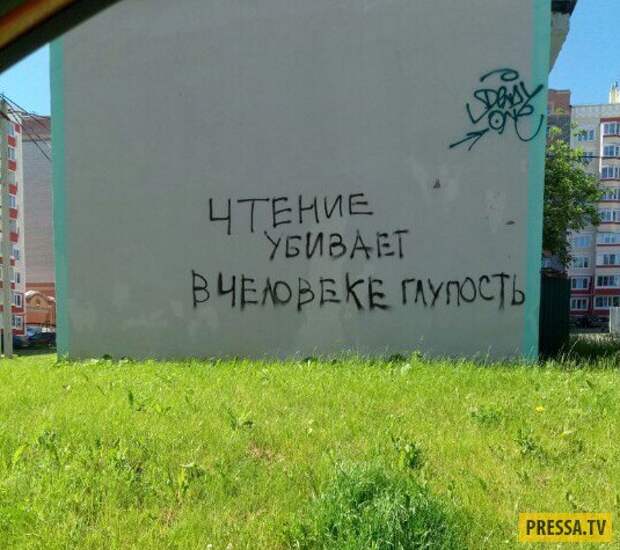 ЧТЕНИЕ
УБИВАЕТ
В ЧЕЛОВЕКЕ ГЛУПОСТЬ
PRESSA.TV